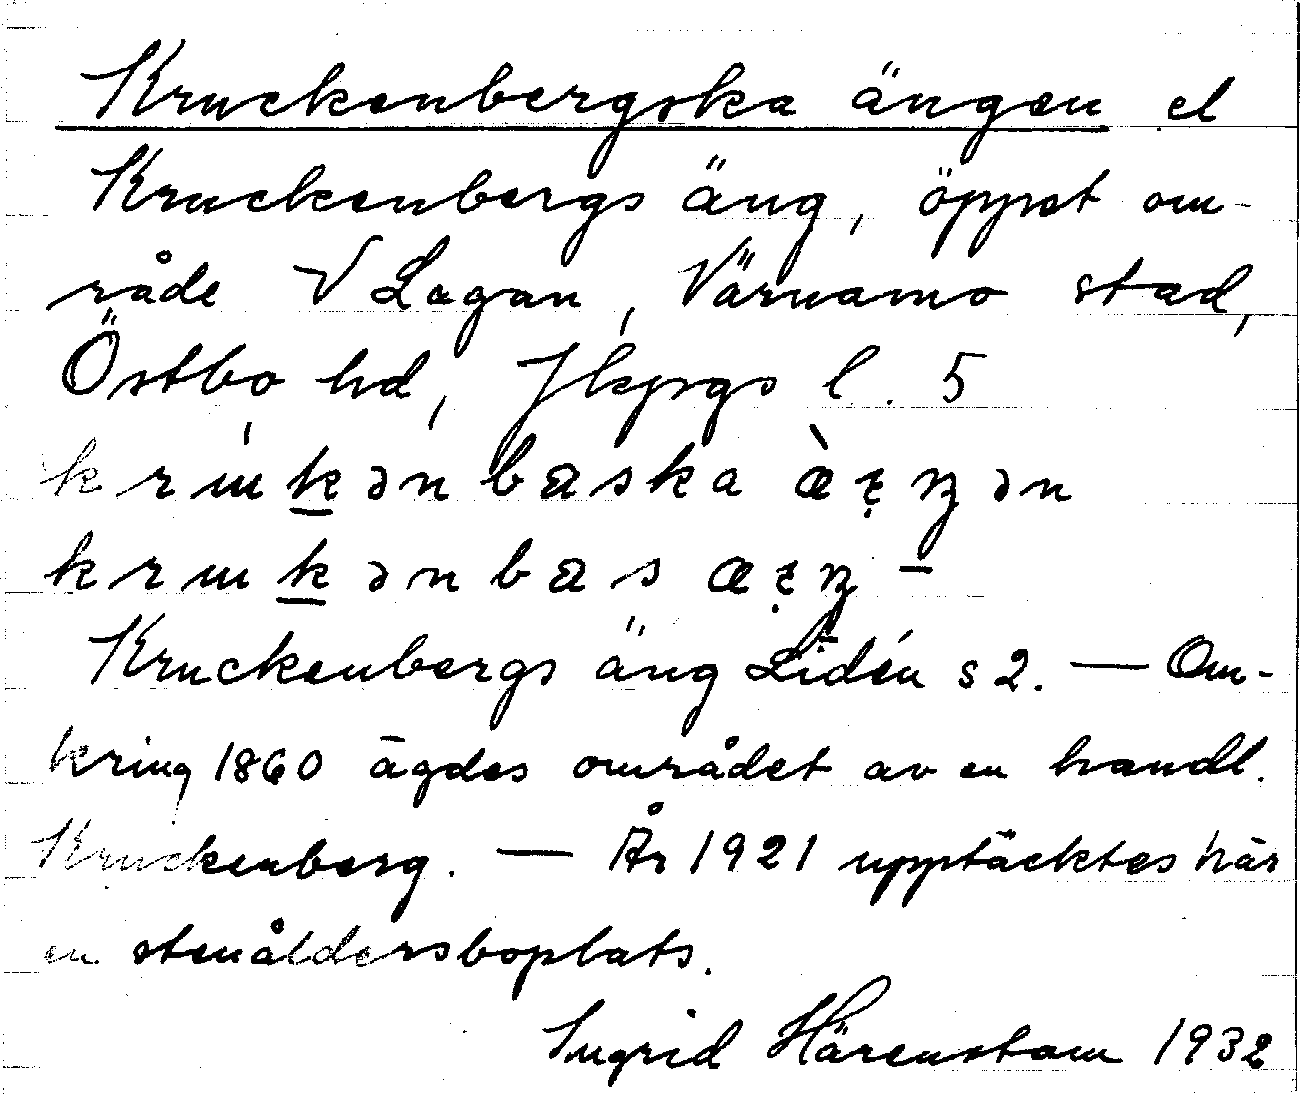 Kruckenbergska ängen el
Kruckenbergs äng, öppet om-
råde V Lagan, Värnamo stad,
Östbo hd, Jkpgs l. 5
Kruckenbergs äng Lidén s 2. — Om-
kring 1860 ägdes området av en handl.
Kruckenberg. — År 1921 upptäcktes här
en stenåldersboplats.
Ingrid Härenstam 1932